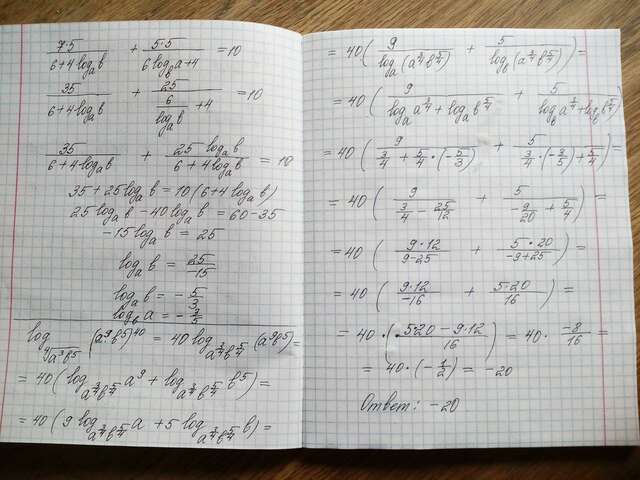 7·5/(6+4log_a b) + 5·5/(6log_b a+4) = 10
35/(6+4log_a b) + 25/(6/(log_a b) + 4) = 10
35/(6+4log_a b) + 25log_a b/(6+4log_a b) = 10
35+25log_a b = 10(6+4log_a b)
25log_a b - 40log_a b = 60-35
-15log_a b = 25
log_a b = 25/-15
log_a b = -5/3
log_b a = -3/5
(a⁹b⁵)⁴⁰ = 40 log_{a^{3/4}b^{5/4}} (a⁹b⁵) =
= 40(log_{a^{3/4}b^{5/4}} a⁹ + log_{a^{3/4}b^{5/4}} b⁵) =
= 40(9 log_{a^{3/4}b^{5/4}} a + 5 log_{a^{3/4}b^{5/4}} b) =
= 40(9/(log_a(a^{3/4}b^{5/4})) + 5/(log_b(a^{3/4}b^{5/4}))) =
= 40(9/(log_a a^{3/4} + log_a b^{5/4}) + 5/(log_b a^{3/4} + log_b b^{5/4}))
= 40(9/(3/4 + 5/4·(-5/3)) + 5/(3/4·(-3/5) + 5/4)) =
= 40(9/(3/4 - 25/12) + 5/(-9/20 + 5/4)) =
= 40(9·12/(9-25) + 5·20/(-9+25)) =
= 40(9·12/-16 + 5·20/16) =
= 40·((5·20 - 9·12)/16) = 40· -8/16 =
= 40·(-1/2) = -20
Ответ: -20